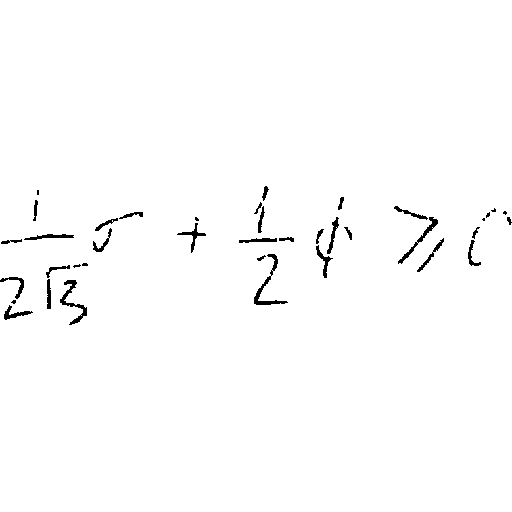 \frac{1}{2\sqrt{3}} \sigma + \frac{1}{2} \phi \geqslant 0